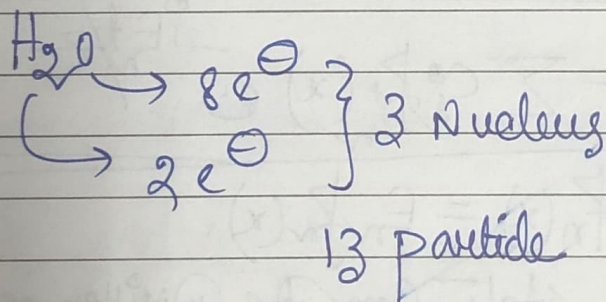 H2O → 8e⊖
→ 2e⊖ } 3 Nucleus
13 particle